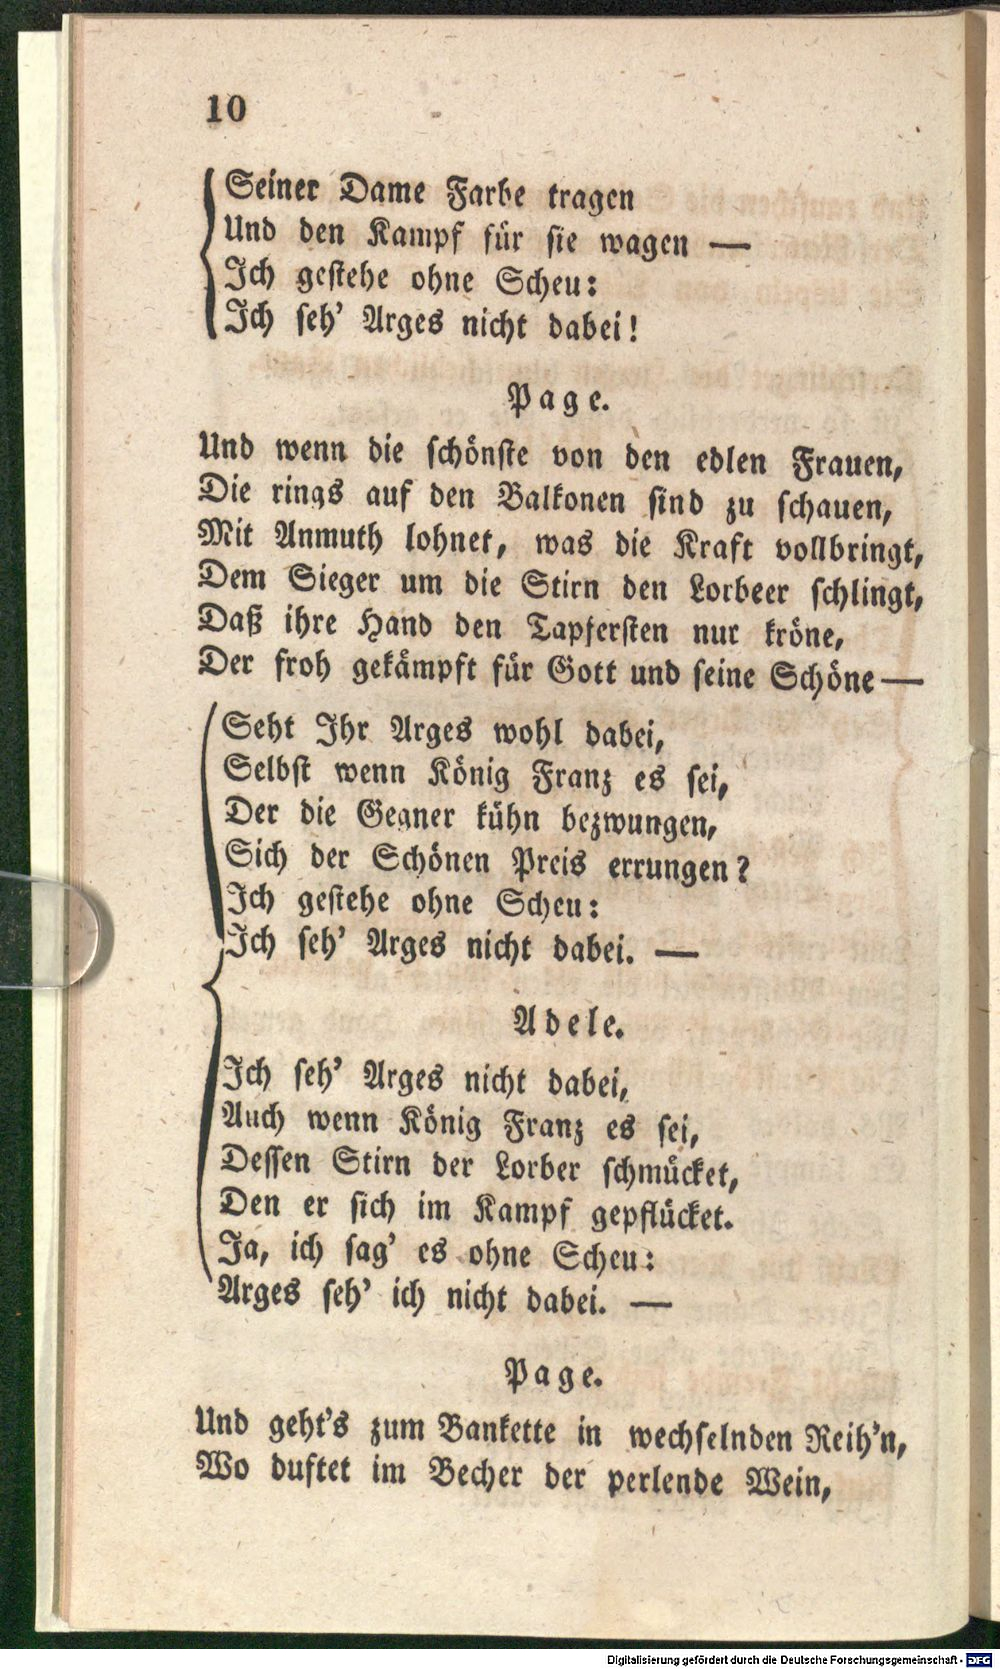 10
Seiner Dame Farbe tragen
Und den Kampf für sie wagen —
Ich gestehe ohne Scheu:
Ich seh' Arges nicht dabei!
Page.
Und wenn die schönste von den edlen Frauen,
Die rings auf den Balkonen sind zu schauen,
Mit Anmuth lohnet, was die Kraft vollbringt,
Dem Sieger um die Stirn den Lorbeer schlingt,
Daß ihre Hand den Tapfersten nur kröne,
Der froh gekämpft für Gott und seine Schöne —
Seht Ihr Arges wohl dabei,
Selbst wenn König Franz es sei,
Der die Gegner kühn bezwungen,
Sich der Schönen Preis errungen?
Ich gestehe ohne Scheu:
Ich seh' Arges nicht dabei. —
Adele.
Ich seh' Arges nicht dabei,
Auch wenn König Franz es sei,
Dessen Stirn der Lorber schmücket,
Den er sich im Kampf gepflücket.
Ja, ich sag' es ohne Scheu:
Arges seh' ich nicht dabei. —
Page.
Und geht's zum Bankette in wechselnden Reih'n,
Wo duftet im Becher der perlende Wein,
Digitalisierung gefördert durch die Deutsche Forschungsgemeinschaft - DFG